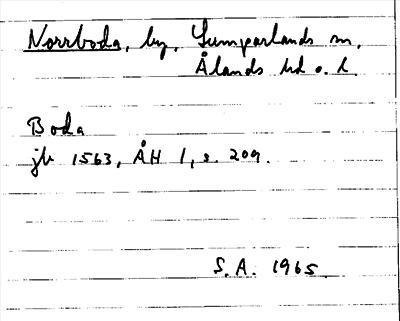 Norrboda, by, Lumparlands sn,
Ålands hd o. l.
Boda
jb 1563, ÅH 1, s. 209.
S.A. 1965